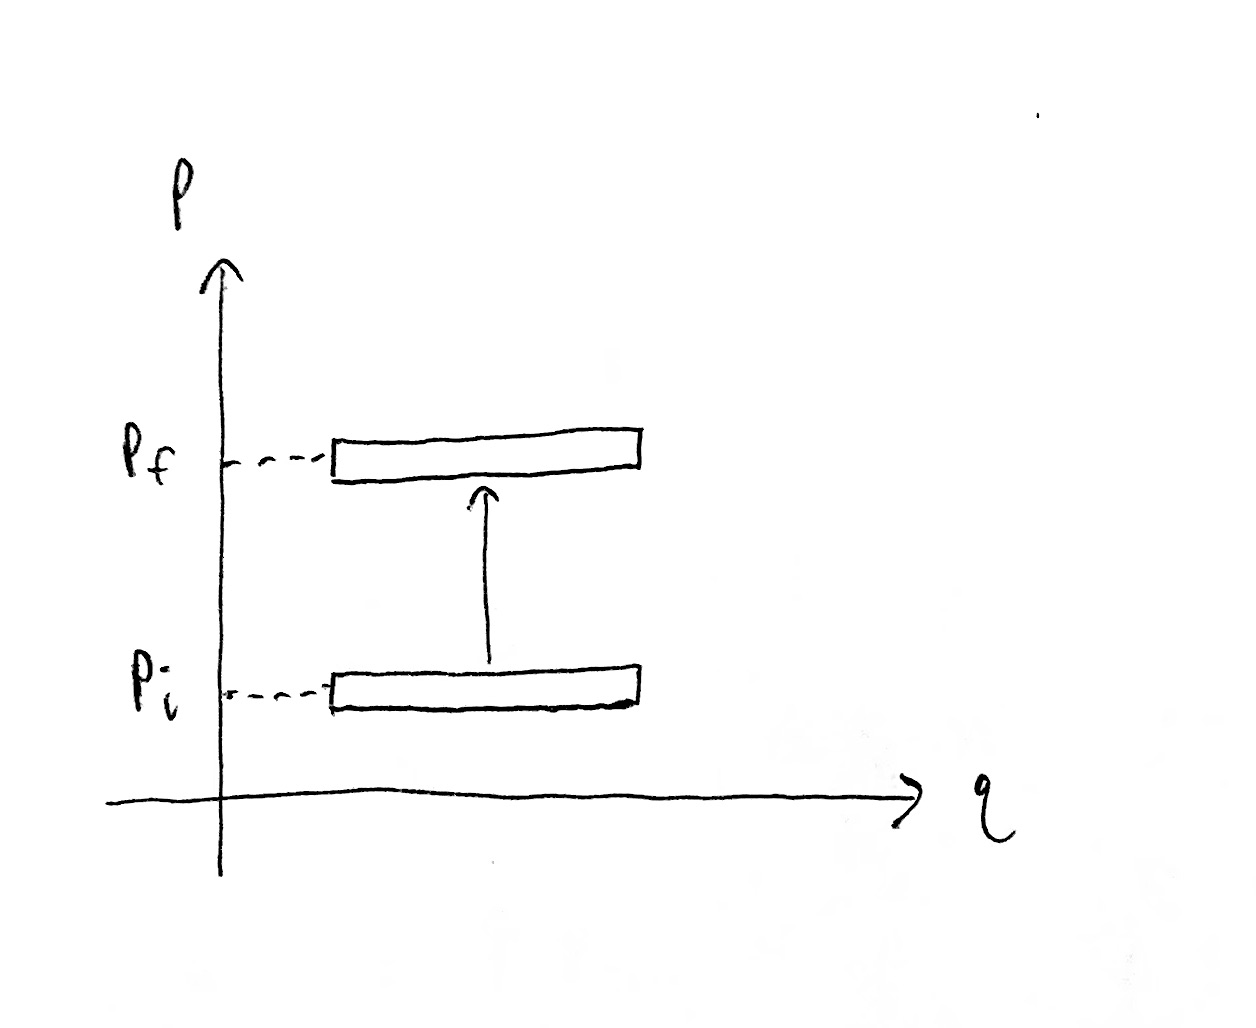 P
Pf
Pi
q